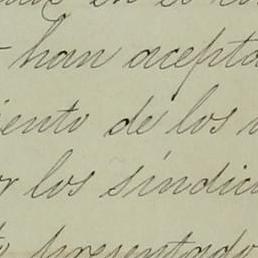 en el
han acepta
iento de los
or los síndic
presentado